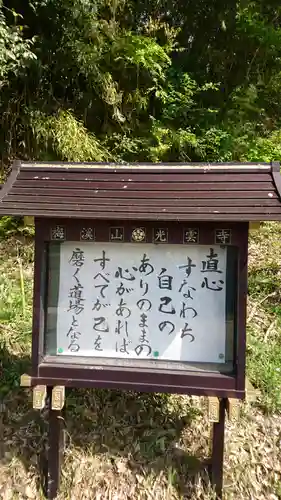 梅溪山光雲寺
直心
すなわち
自己の
ありのままの
心があれば
すべてが己を
磨く道場となる